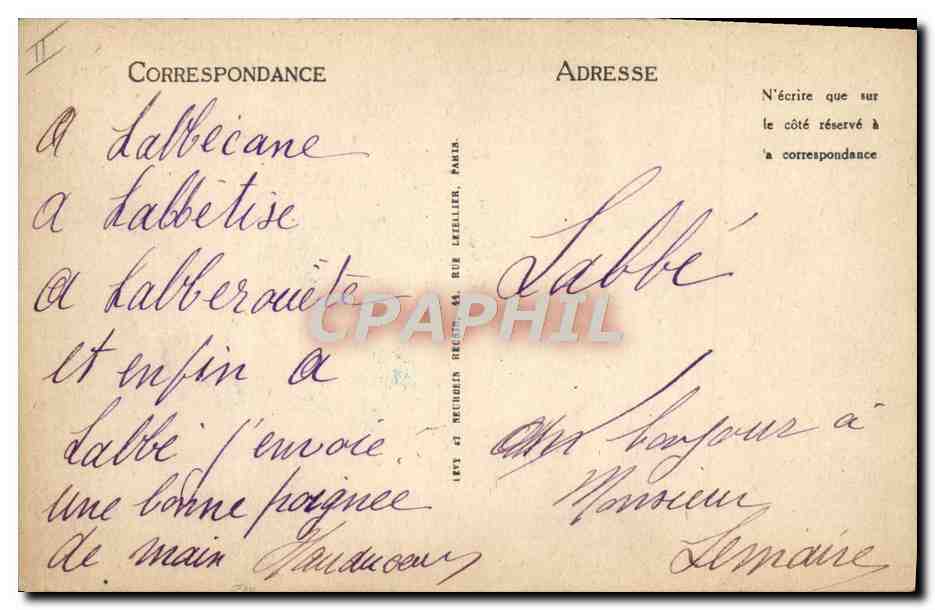 II
CORRESPONDANCE
a Labbécane
a Labbêtise
a Labberouète
et enfin a
Labbé j'envoie
une bonne poignee
de main
ADRESSE
N'écrire que sur
le côté réservé à
la correspondance
LÉVY ET NEURDEIN RÉUNIS, 44, RUE LETELLIER, PARIS.
Labbé
bonjour à
Monsieur
Lemaire
CPAPHIL